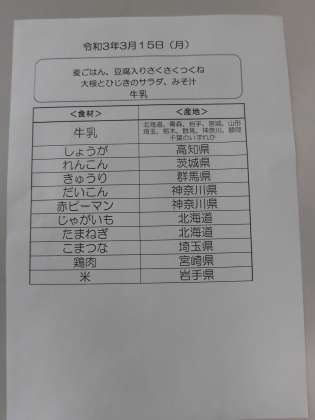 令和3年3月15日（月）
麦ごはん、豆腐入りさくさくつくね
大根とひじきのサラダ、みそ汁
牛乳
＜食材＞ ＜産地＞
牛乳 北海道、青森、岩手、宮城、山形
埼玉、栃木、群馬、神奈川、静岡
千葉のいずれか
しょうが 高知県
れんこん 茨城県
きゅうり 群馬県
だいこん 神奈川県
赤ピーマン 神奈川県
じゃがいも 北海道
たまねぎ 北海道
こまつな 埼玉県
鶏肉 宮崎県
米 岩手県